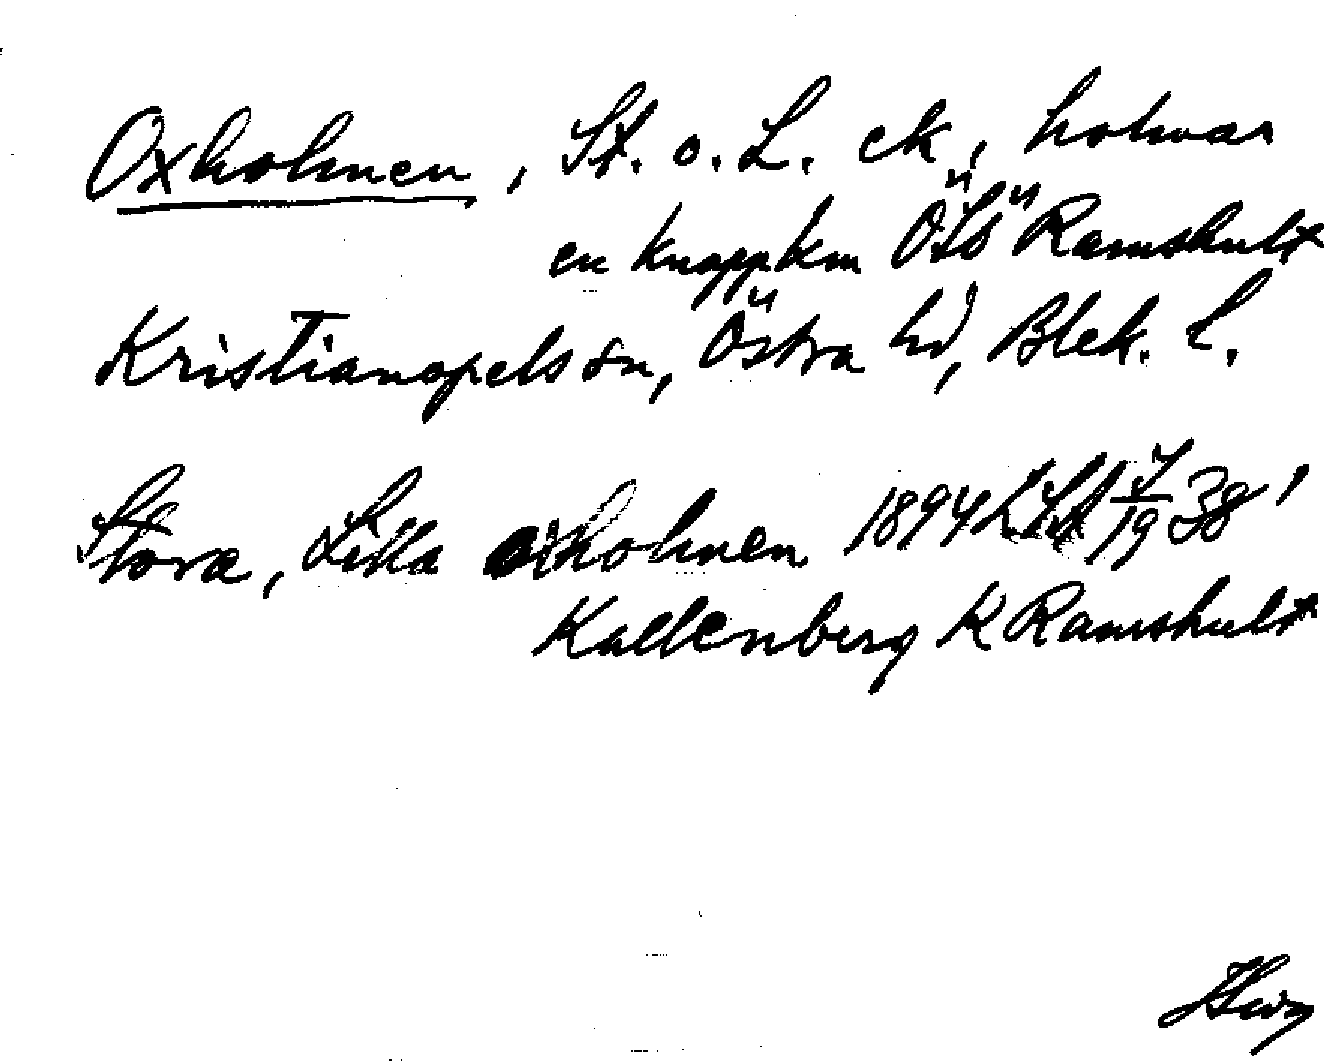 Oxholmen, St. o. L. ek, holmar
en knapp km ÖSÖ Ramshult
Kristianopels sn, Östra hd, Blek. l.
Stora, Lilla oxholmen 1894 38'
Kallenberg K Ramshult